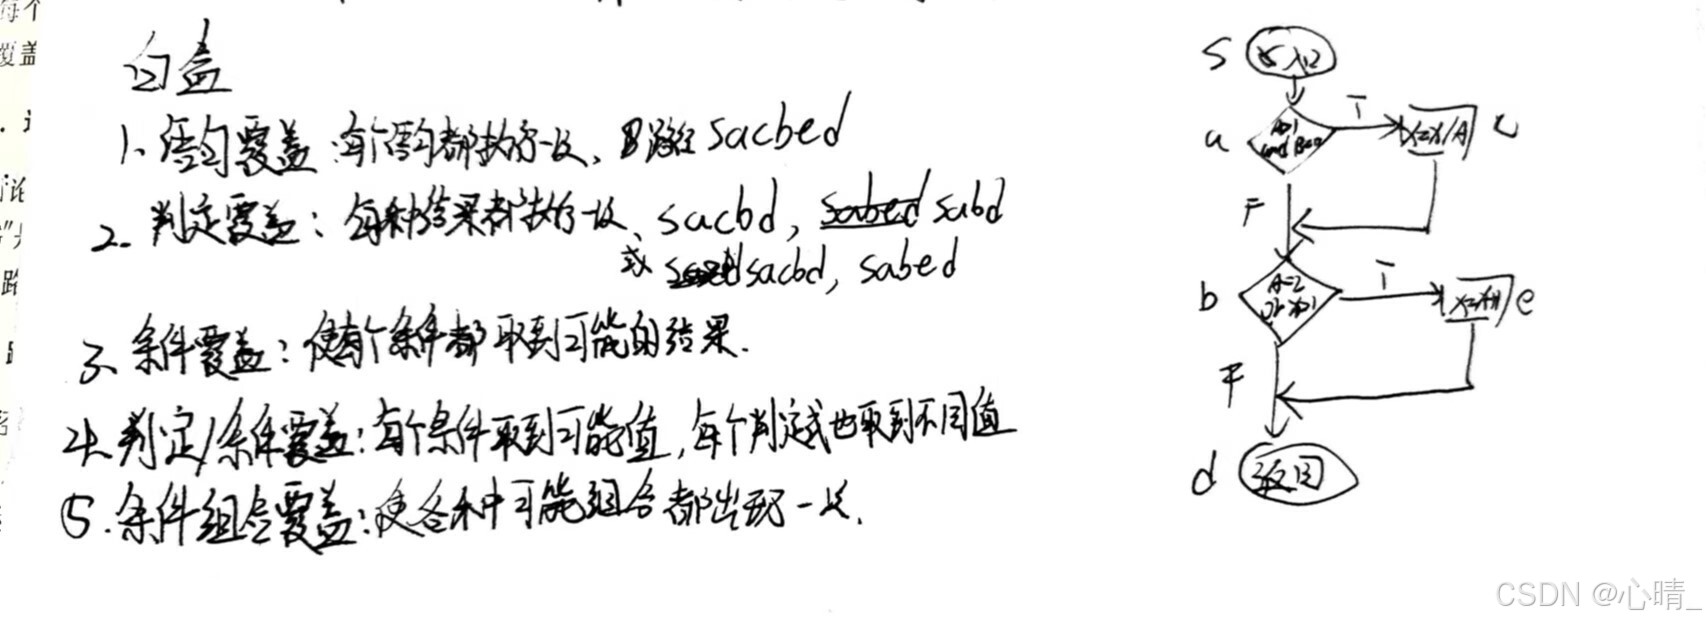 每个
覆盖
白盒
1、语句覆盖:每个语句都执行一次、即路径 sacbed
2、判定覆盖:每种结果都执行一次、sacbd, sabed sabd
或 sacbd, sabed
3、条件覆盖:使每个条件都取到可能的结果.
4、判定/条件覆盖:每个条件取到可能值,每个判定式也取到不同值
⑤.条件组合覆盖:使各种可能组合都出现一次.
S 入口
a A>1 and B=0 T X=X/A c
F
b A=2 or X>1 T X=X+1 e
F
d 返回
论
路
CSDN @心晴_